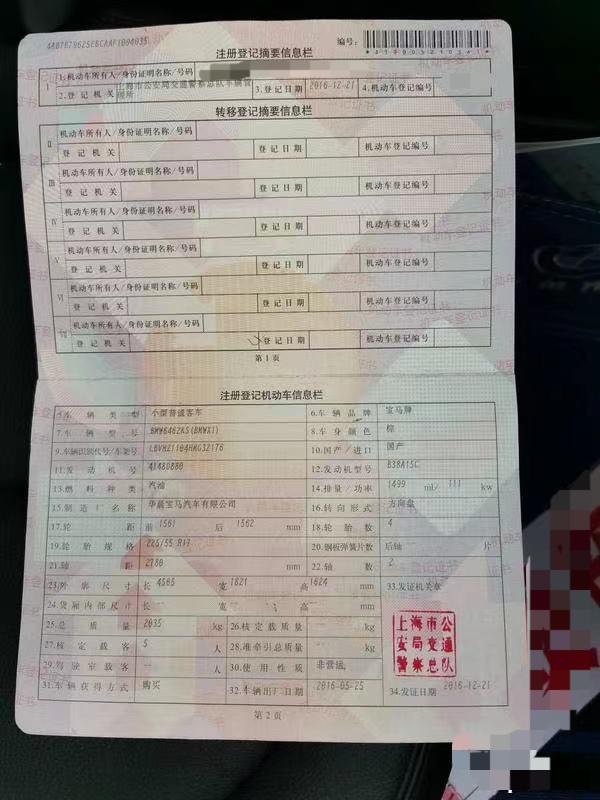 4AB7B79625EBCAAF1094035
编号:
注册登记摘要信息栏
I 1.机动车所有人/身份证明名称/号码
2.登记机关 上海市公安局交通警察总队车辆管理所 3.登记日期 2016-12-21 4.机动车登记编号
转移登记摘要信息栏
II 机动车所有人/身份证明名称/号码
登记机关 登记日期 机动车登记编号
III 机动车所有人/身份证明名称/号码
登记机关 登记日期 机动车登记编号
IV 机动车所有人/身份证明名称/号码
登记机关 登记日期 机动车登记编号
V 机动车所有人/身份证明名称/号码
登记机关 登记日期 机动车登记编号
VI 机动车所有人/身份证明名称/号码
登记机关 登记日期 机动车登记编号
VII 机动车所有人/身份证明名称/号码
登记机关 登记日期 机动车登记编号
第1页
注册登记机动车信息栏
5.车辆类型 小型普通客车 6.车辆品牌 宝马牌
7.车辆型号 BMW6462KS(BMWX1) 8.车身颜色 棕
9.车辆识别代号/车架号 LBVHZ1104HMG32176 10.国产/进口 国产
11.发动机号 41480880 12.发动机型号 B38A15C
13.燃料种类 汽油 14.排量/功率 1499 ml/ 111 kw
15.制造厂名称 华晨宝马汽车有限公司 16.转向形式 方向盘
17.轮距 前 1561 后 1562 mm 18.轮胎数 4
19.轮胎规格 225/55 R17 20.钢板弹簧片数 后轴 片
21.轴距 2780 mm 22.轴数 2
23.外廓尺寸 长 4565 宽 1821 高 1624 mm 33.发证机关章
24.货厢内部尺寸 长 宽 高 mm
25.总质量 2035 kg 26.核定载质量 kg
27.核定载客 5 人 28.准牵引总质量 kg
29.驾驶室载客 人 30.使用性质 非营运
31.车辆获得方式 购买 32.车辆出厂日期 2016-05-25 34.发证日期 2016-12-21
上海市公
安局交通
警察总队
第2页